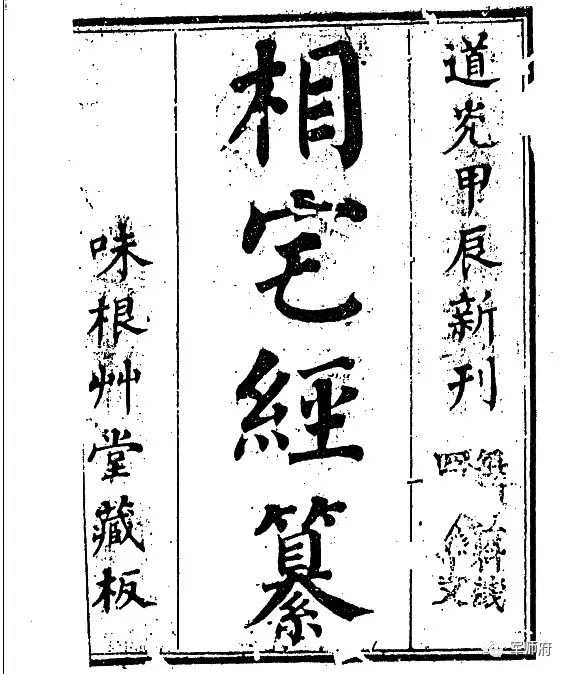 道光甲辰新刊
相宅經纂
味根艸堂藏板
军师府